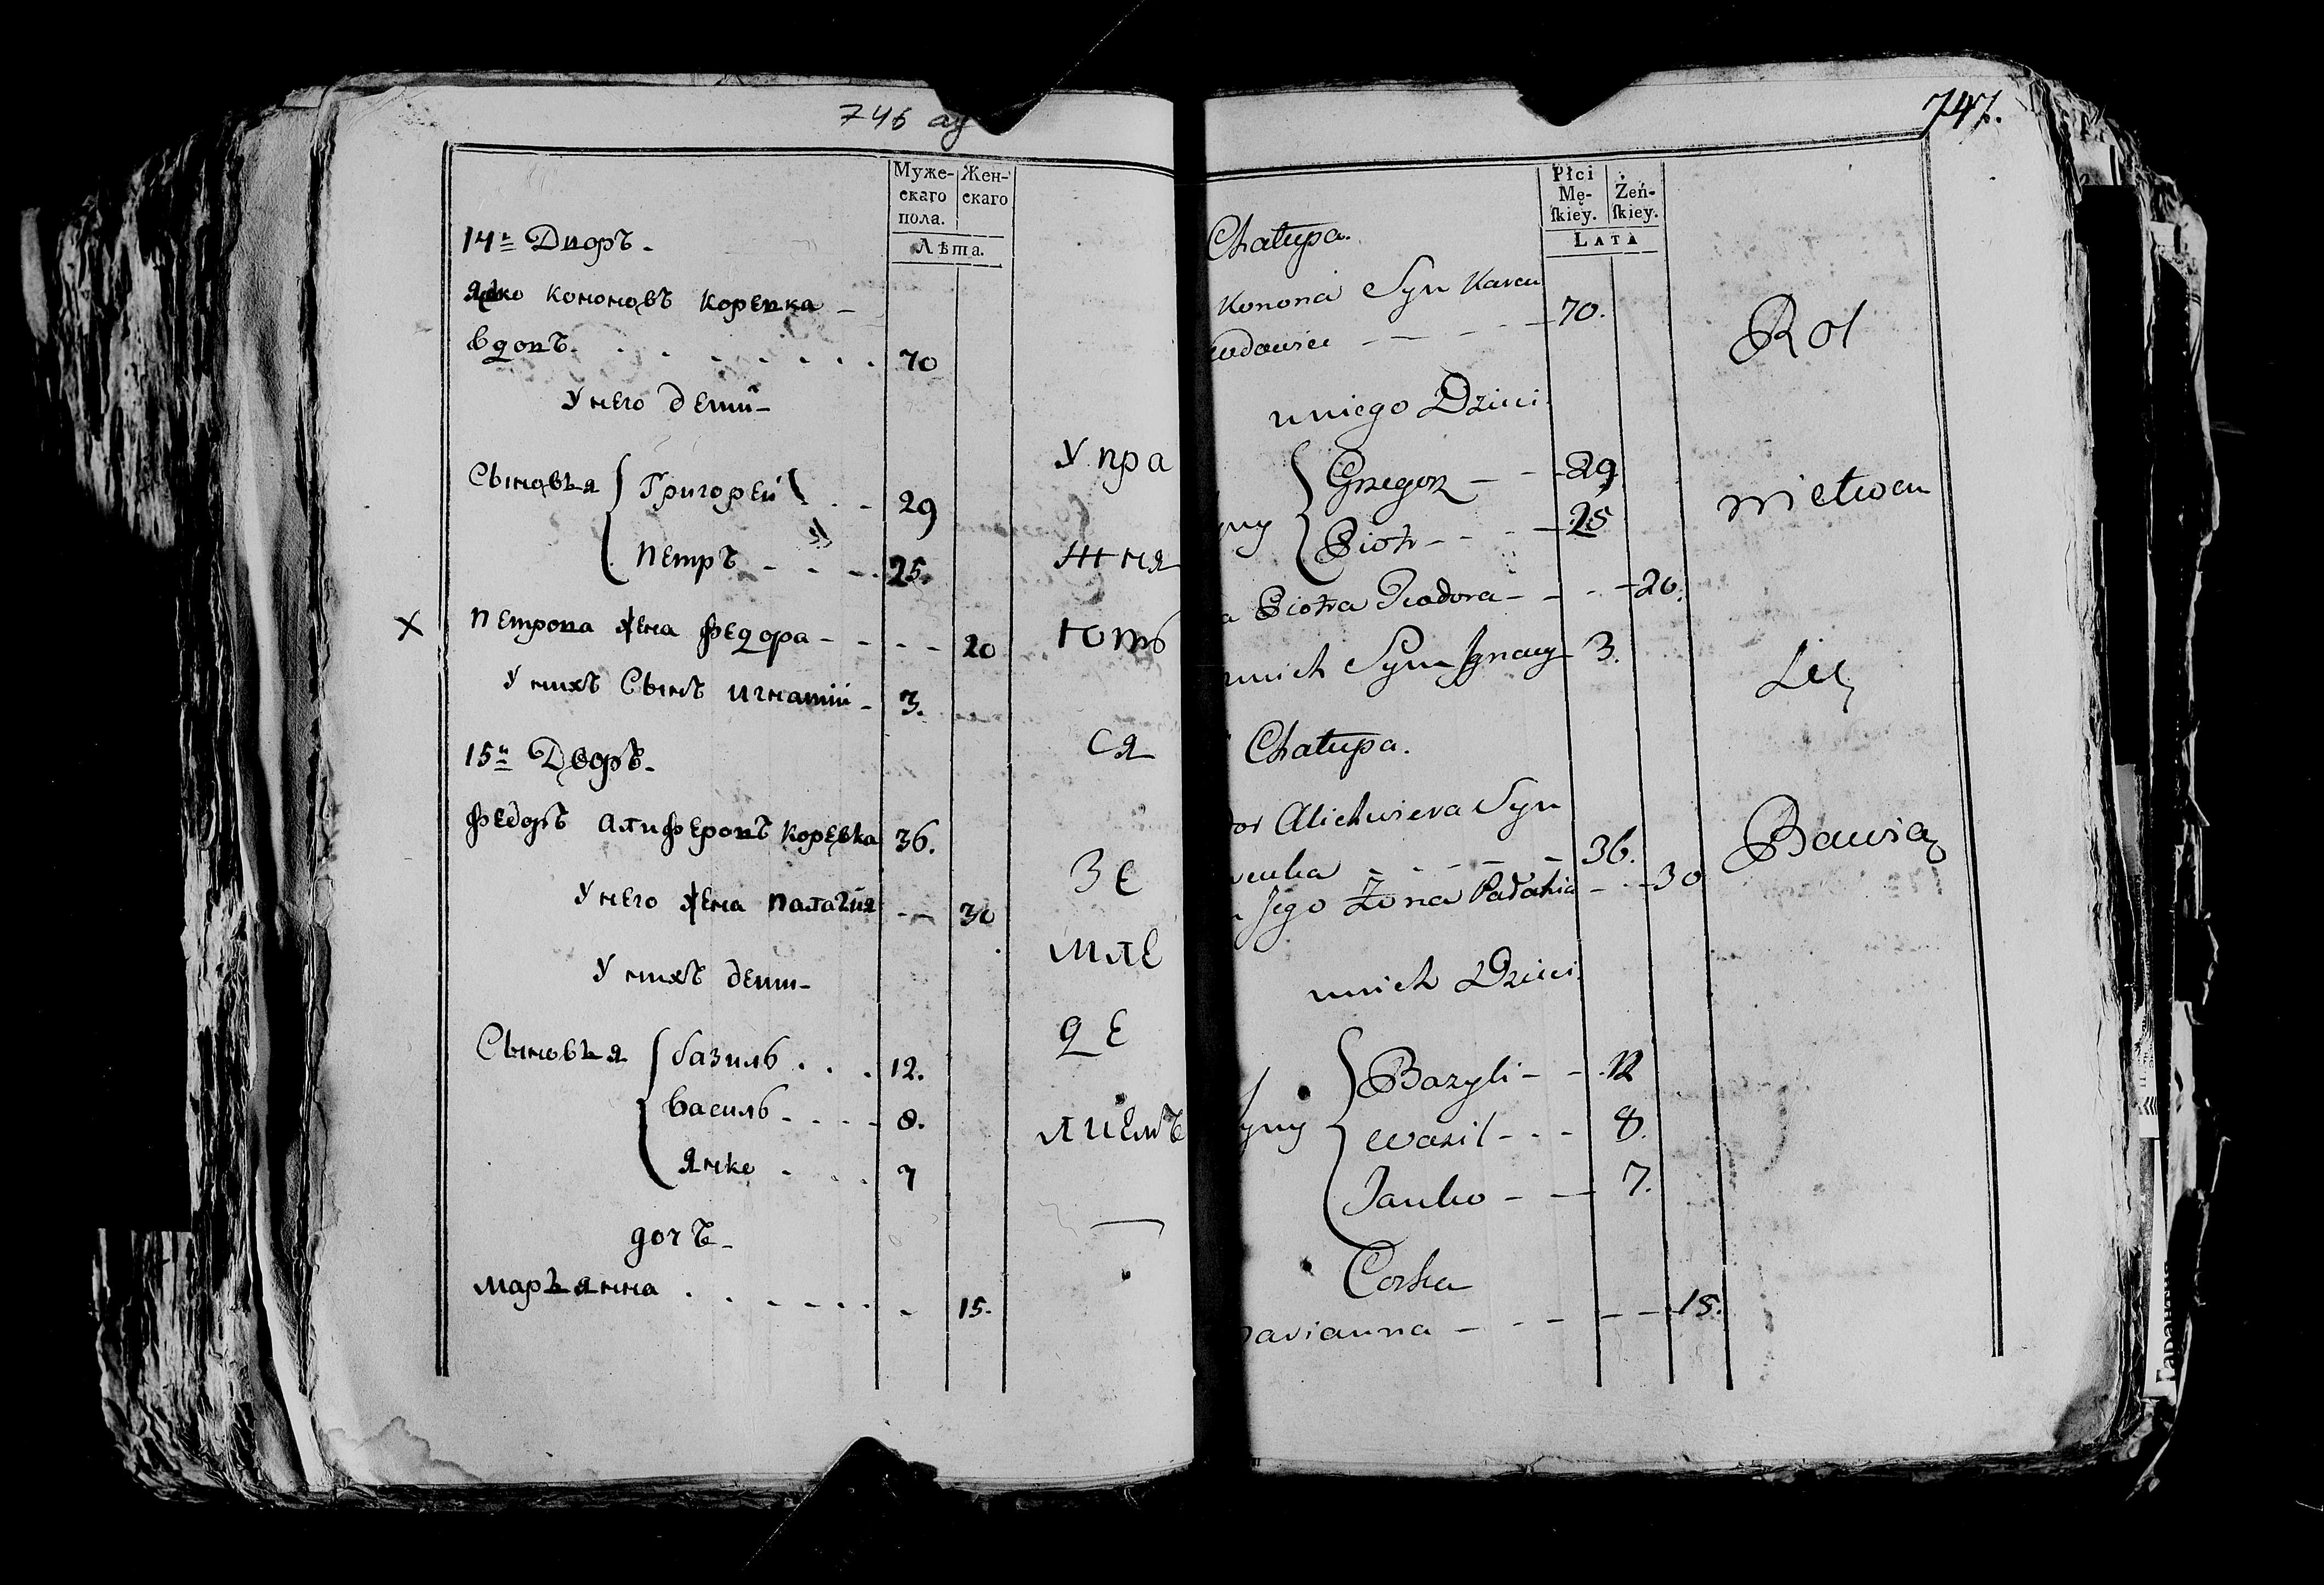 746 ау
Муже-
скаго
пола.
Жен-
скаго
Лѣта.
14й Дворъ
Янко Кононовъ Коревка
вдовъ 70
У него дети
Сыновья Григорей 29
Петръ 25.
Петрова жена Федора 20
У нихъ Сынъ Игнатій 3.
15й Дворъ
Федоръ Алиферовъ Коревка 36.
У него жена Палагія 30
У нихъ дети
Сыновья Базиль 12.
Василь 8.
Янко 7
дочъ
Марьянна 15.
Упра
жня
ютъ
ся
зе
мле
де
лиемъ
747.
Płci
Mę-
ſkiey.
Żeń-
ſkiey.
LATA
Chałupa.
Konona Syn
wdowiec 70.
u niego Dzieci
Grzegorz 29
Piotr 25
Piotra Teodora 20.
Syn Ignacy 3.
Chałupa.
Alichwiera Syn
36.
Jego Żona Pałahia 30
u nich Dzieci
Bazyli 12
Wasil 8.
Janko 7.
Corka
arianna 15.
Rol
nictwem
Się
Bawią